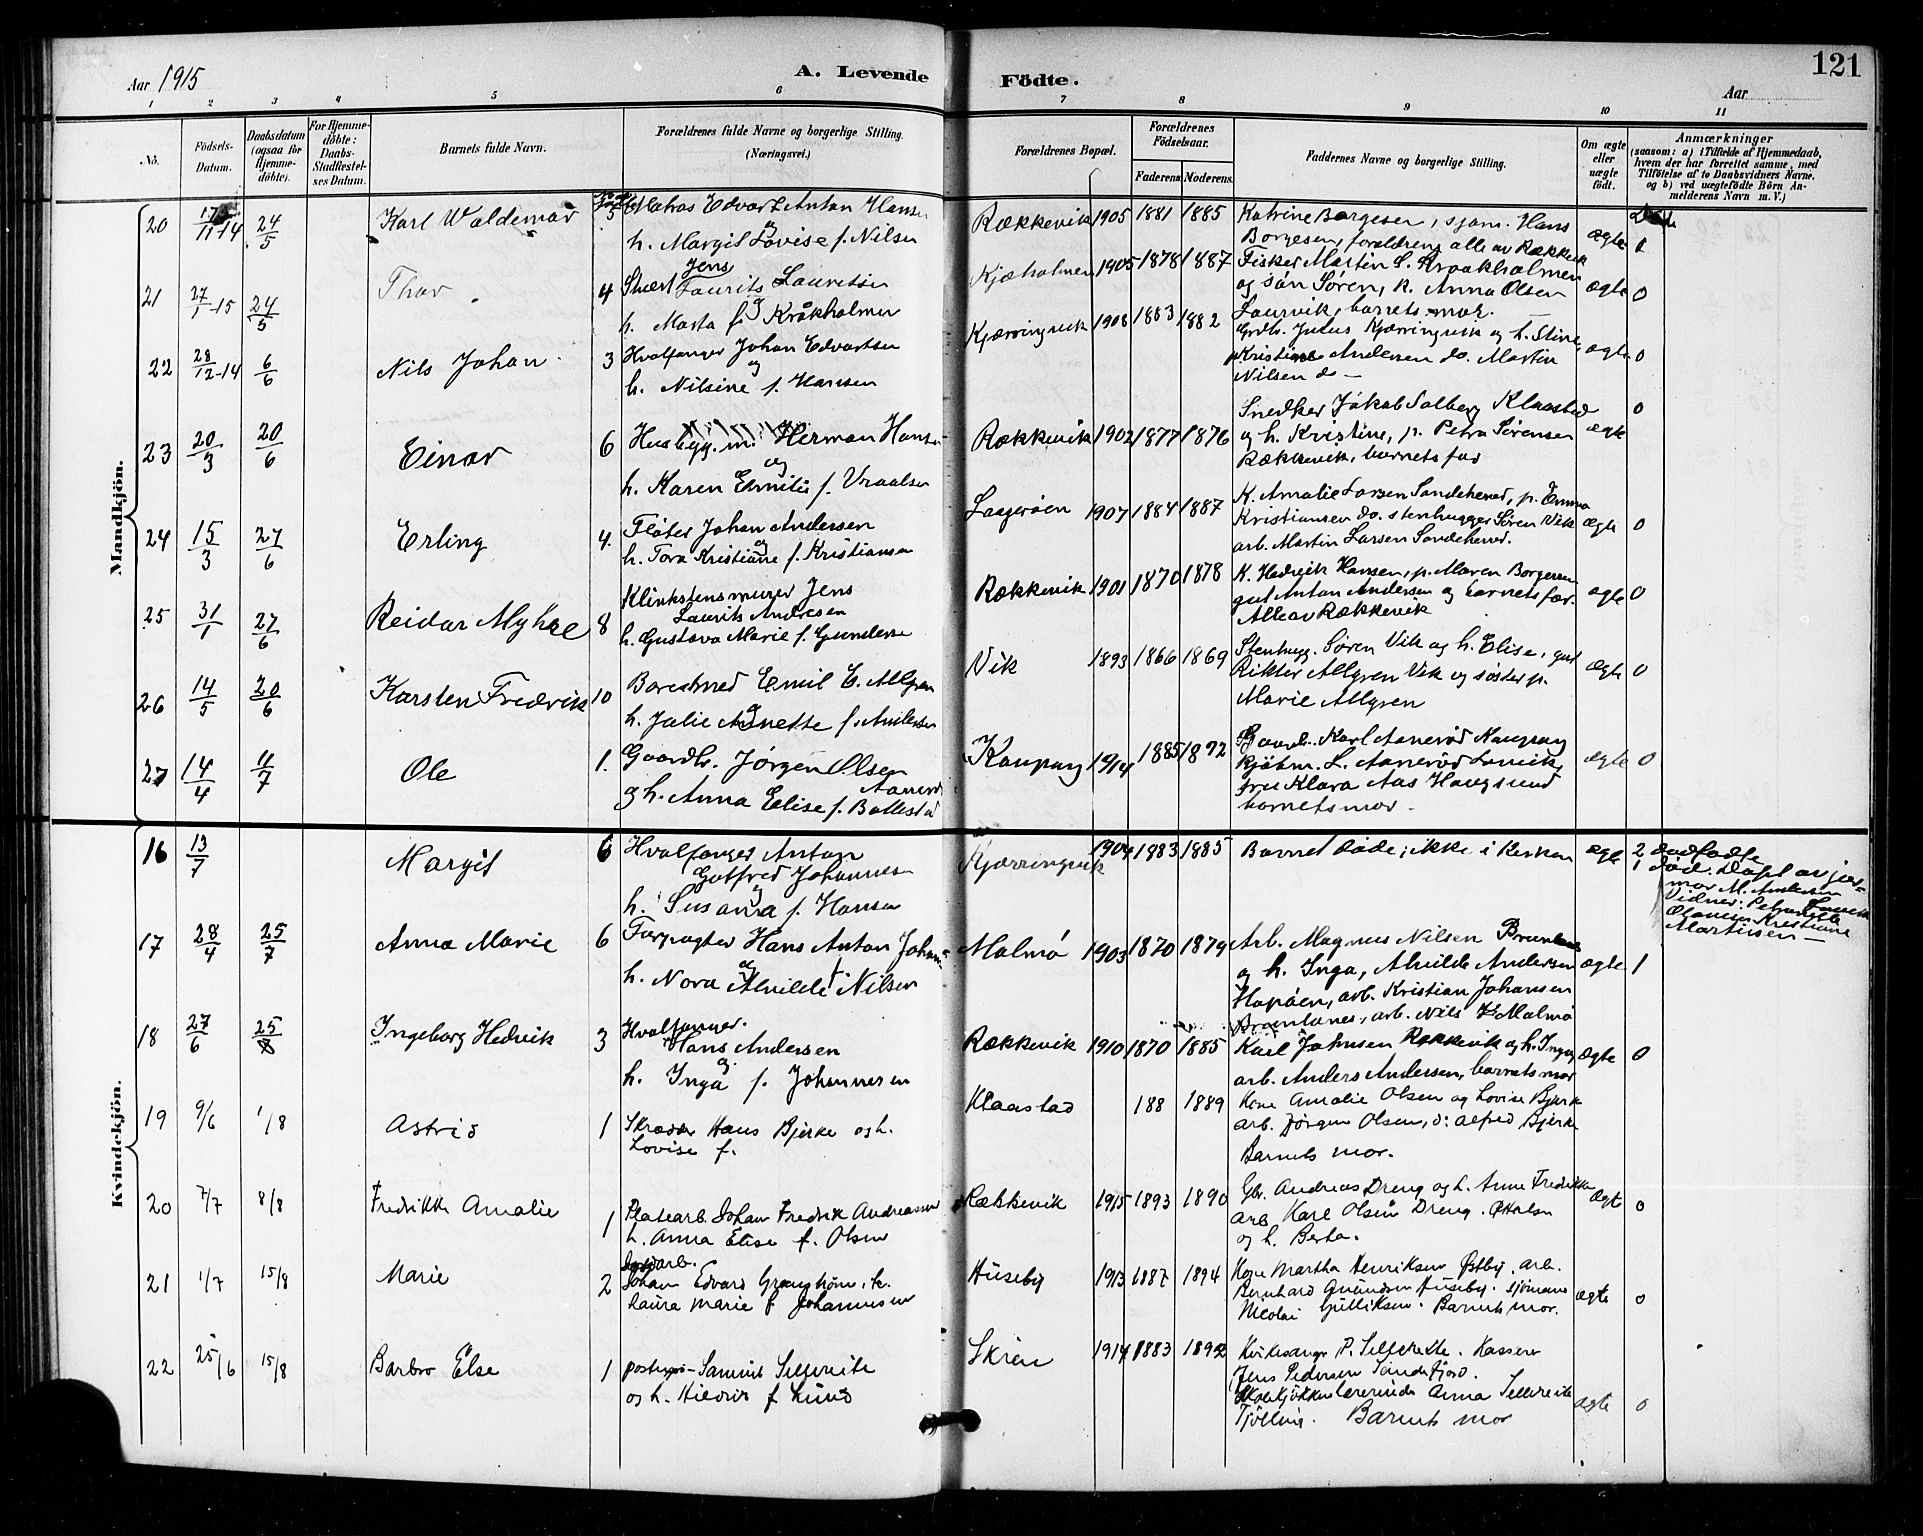 121
Aar 1915
A. Levende
Födte.
Aar
1 2 3 4 5 6 7 8 9 10 11
No.
Födsels-
Datum.
Daabsdatum
(ogsaa for
Hjemme-
döbte).
For Hjemme-
döbte:
Daabs-
Stadfæstel-
ses Datum.
Barnets fulde Navn.
Forældrenes fulde Navne og borgerlige Stilling.
(Næringsvei.)
Forældrenes Bopæl.
Forældrenes
Födselsaar.
Faderens Moderens
Faddernes Navne og borgerlige Stilling.
Om ægte
eller
uægte
født.
Anmærkninger
(saasom: a) i Tilfælde af Hjemmedaab,
hvem der har forrettet samme, med
Tilföielse af to Daabsvidners Navne,
og b) ved uægtefödte Börn An-
melderens Navn m. V.)
Mandkjön.
20 17/11-14 24/5 Karl Waldemar 5 Matros Edvart Anton Hansen
og
h. Margit Lovise f. Nilsen
Rækkevik 1905 1881 1885
Katrine Borgesen, sjøm. Hans
Borgesen, forældrene alle av Rækkevik
ægte 1
21 27/1-15 24/5 Thor 4 Stuert Jens
Laurits Lauritsen
og
h. Marta f. Kråkholmen
Kjæholmen 1905 1878 1887
Fisker Martin L. Kraakholmen
og søn Søren, k. Anna Olsen
Laurvik, barnets mor.
ægte 0
22 28/12-14 6/6 Nils Johan 3 Hvalfanger Johan Edvartsen
og
h. Nilsine f. Hansen
Kjærringvik 1908 1883 1882
Grdbr. Julus Kjærringvik og h. Stine,
Kristine Andersen do. Martin
Nilsen do —
ægte 0
23 20/3 20/6 Einar 6 Husbygg.m. Herman Hansen
og
h. Karen Emilie f. Vraalsen
Rækkevik 1902 1877 1876
Snedker Jakob Solberg Klaastad
og h. Kristine, p. Petra Sørensen
Rækkevik, barnets far
ægte 0
24 15/3 27/6 Erling 4. Fløter Johan Andersen
og
h. Tora Kristiane f. Kristiansen
Lagerøen 1907 1884 1887
K. Amalie Larsen Sandeherred, p. Emma
Kristiansen do. stenhugger Søren Vik
arb. Martin Larsen Sandeherred.
ægte 0
25 31/1 27/6 Reidar Myhre 8 Klinkstensmurer Jens
Laurits Andresen
h. Gustava Marie f. Gundersen
Rækkevik 1901 1870 1878
K. Hedvik Hansen, p. Maren Borgersen
gut Anton Andersen og barnets far.
Alle av Rækkevik
ægte 0
26 14/5 20/6 Karsten Fredrik 10 Emil E. Allgren
og
h. Julie Annette f. Andersen
Vik 1893 1866 1869
Stenhug. Søren Vik og h. Elise, gut
Viktor Allgren Vik og søster p.
Marie Allgren
ægte 0
27 14/4 11/7 Ole 1. Gaardbr. Jørgen Olsen
Aanerød
og h. Anna Elise f. Bollestad
Kaupang 1914 1885 1892
Gaardb. Karl Aanerød Kaupang
kjøbm. L. Aanerød Larvik,
fru Klara Aas Haugsund
barnets mor.
ægte 0
Kvindekjön.
16 13/7 Margit 6 Hvalfanger Anton
Gotfred Johannesen
og
h. Susanna f. Hansen
Kjærringvik 1904 1883 1885
Barnet døde; ikke i kirken
ægte 2 dødfødte
1 død. Døpt av jor-
mor M. Andersen
Vidner: Petra
Olausen Kristiane
Martinsen —
17 28/4 25/7 Anna Marie 6 Forpagter Hans Anton Johans
og
h. Nora Alvilde f. Nilsen
Malmø 1903 1870 1879
Arb. Magnus Nilsen
og h. Inga, Alvilde Andersen
Hapøen, arb. Kristian Johansen
Bramtanes, arb. Nils Malmø
ægte 1
18 27/6 25/8 Ingeborg Hedvik 3 Hvalfanger.
Hans Andersen
og
h. Inga f. Johannesen
Rækkevik 1910 1870 1885
Karl Johnsen Rækkevik og h. Inga,
arb. Anders Andersen, barnets mor
ægte 0
19 9/6 1/8 Astrid 1 Skræder Hans Bjerke og h.
Lovise f.
Klaastad 188 1889
Kone Amalie Olsen og Lovise Bjerke
arb. Jörgen Olsen, d: Alfred Bjerke
Barnets mor.
20 7/7 8/8 Fredrikke Amalie 1 Platearb. Johan Fredrik Andreassen
h. Anna Elise f. Olsen
Rækkevik 1915 1893 1890
Gbr. Andreas Dreng og h. Anne Fredrikke
arb. Karl Olsen Dreng.
og h. Berta.
ægte 0
21 1/7 15/8 Marie 2
Johan Edvard Grønstrøm, h.
Laura Marie f Johannesen
Huseby 1913 1887 1894
Kone Martha Henriksen Østby, arb.
Bernhard Gundersen Huseby. Sjömand
Nicolai Gulliksen. Barnets mor.
ægte 0
22 25/6 15/8 Barbro Else 1 Samuel Sellereite
og h. Hildur f Lund
Skrene 1914 1883 1892
Kirkesanger P. Sellereite. Kasserer
Jens Pedersen Sandefjord.
Skolekjökkenlærerinde Anna Sellereite
Tjölling. Barnets mor
ægte 0